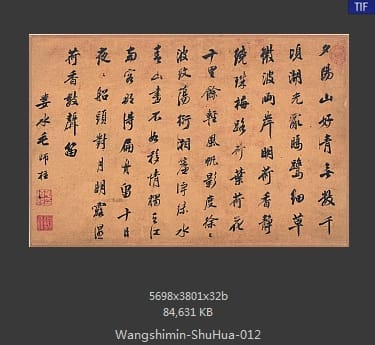 TIF
夕陽山好青無數千
頃湖光亂鷺細草
微波兩岸明荷香靜
繞珠梅路荷葉荷花
千里餘輕風帆影度徐〻
波紋蕩衍湘簾浮綠水
青山畫不如移情獨江
南客得扁舟留十日
夜〻船頭對月明露濕
荷香數聲笛
婁水毛師柱
5698x3801x32b
84,631 KB
Wangshimin-ShuHua-012